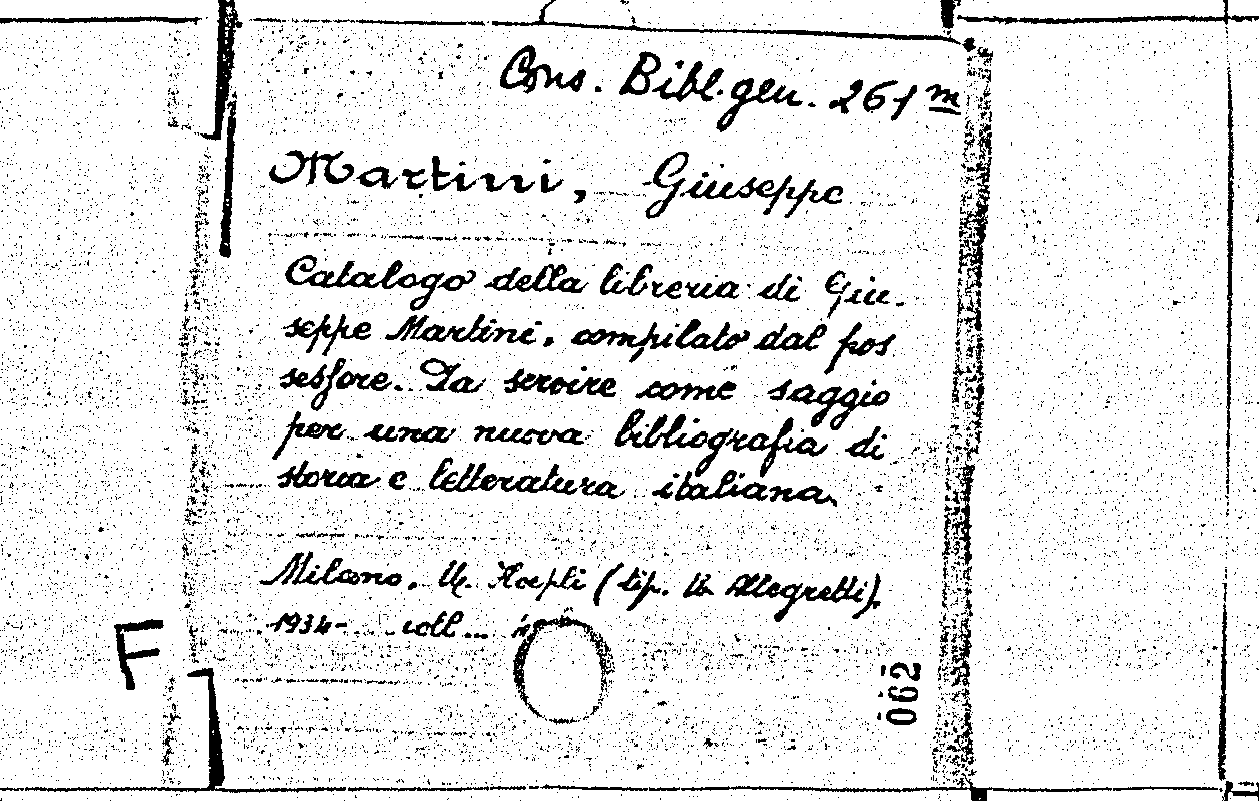 Cons. Bibl. gen. 261 m
Martini, Giuseppe
Catalogo della libreria di Giu-
seppe Martini, compilato dal pos
sessore. Da servire come saggio
per una nuova bibliografia di
storia e letteratura italiana.
Milano. U. Hoepli (tip. U. Allegretti).
1934- voll...
F
062